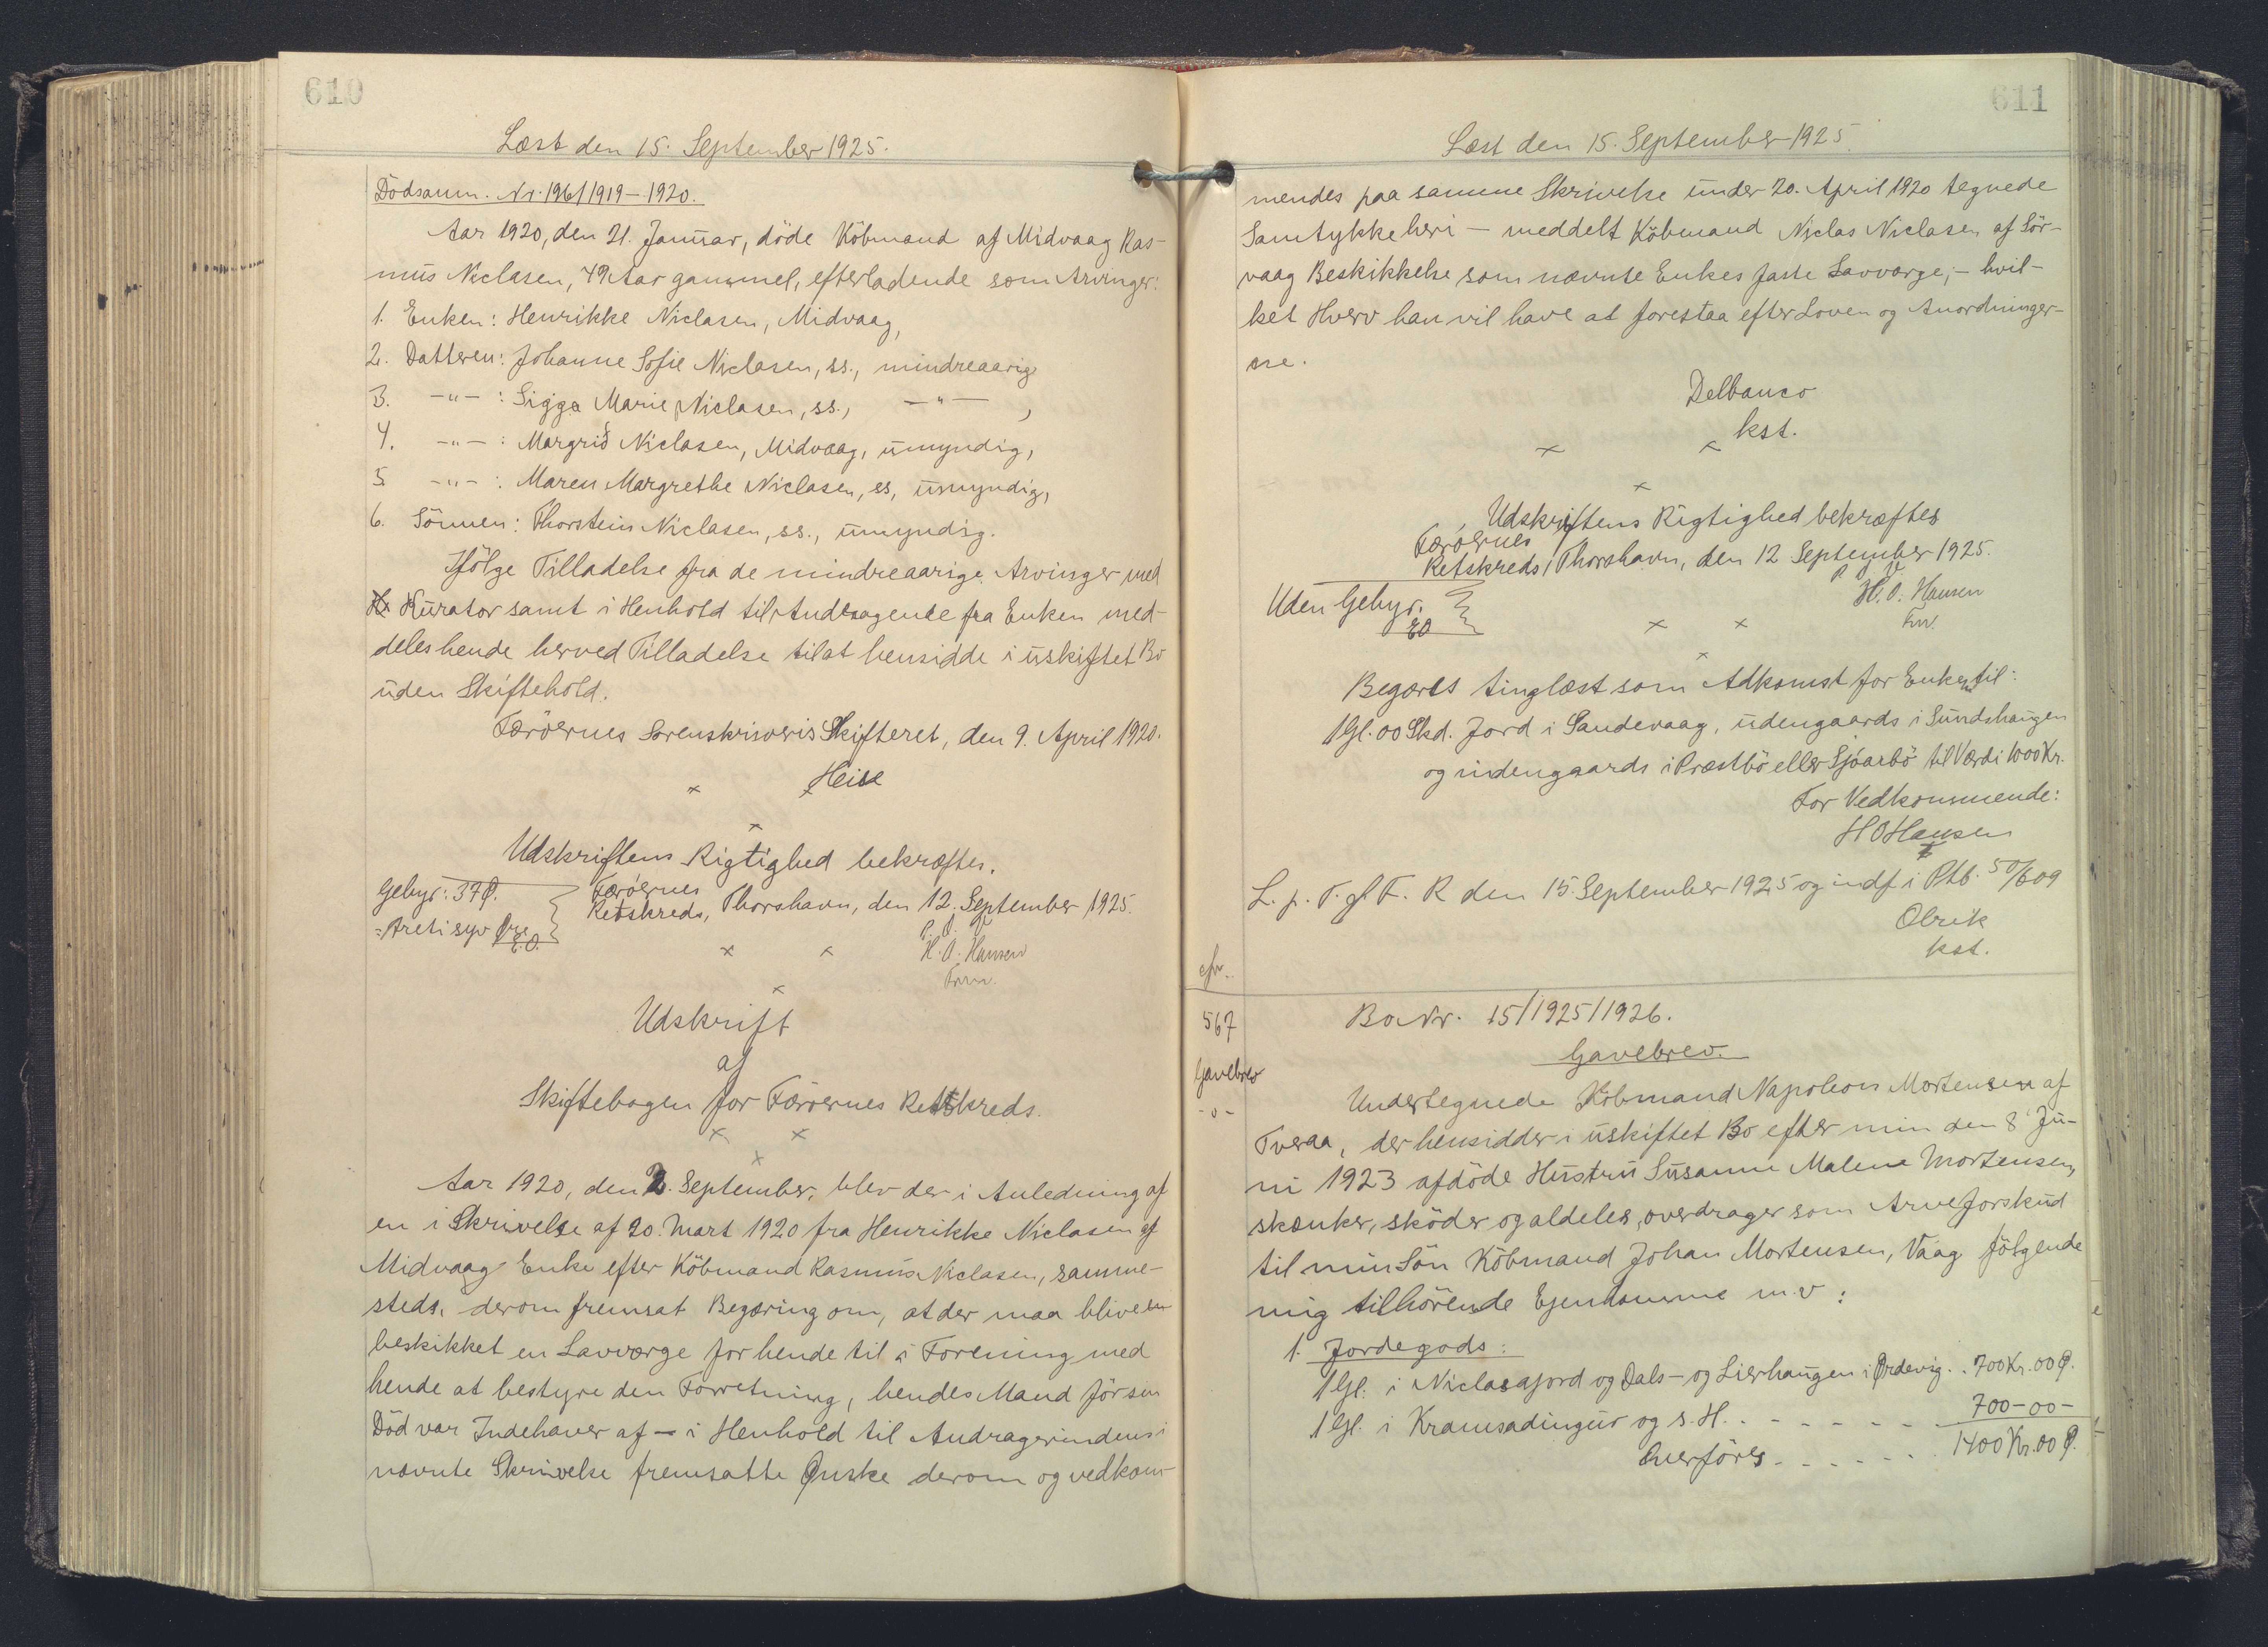 610
Læst den 15. September 1925.
Dödsanm. Nr. 196/1919-1920.
Aar 1920, den 21. Januar, döde Köbmand af Midvaag Ras-
mus Niclasen, 49 Aar gammel, efterladende som Arvinger:
1. Enken: Henrikke Niclasen, Midvaag,
2. Datteren: Johanne Sofie Niclasen, ss., mindreaarig
3. -"- : Sigga Marie Niclasen, ss., -"- ,
4. -"- : Margrid Niclasen, Midvaag, umyndig,
5 -"- : Maren Margrethe Niclasen, ss, umyndig,
6. Sönnen: Thorstein Niclasen, ss., umyndig.
Ifölge Tilladelse fra de mindreaarige Arvinger med
Kurator samt i Henhold til Andragende fra Enken med-
deles hende herved Tilladelse til at hensidde i uskiftet Bo
uden Skiftehold.
Færöernes Sorenskriveris Skifteret, den 9. April 1920.
Heise
x x
x
Udskriftens Rigtighed bekræftes.
Gebyr: 37 Ø.
= Treti syv Øre
E.O.
Færöernes
Retskreds, Thorshavn, den 12. September 1925.
P. O. V
H. O. Hansen
Fm.
x x
x
Udskrift
af
Skiftebogen for Færöernes Retskreds.
x x
x
Aar 1920, den 2. September, blev der i Anledning af
en i Skrivelse af 20. Mart 1920 fra Henrikke Niclasen af
Midvaag Enke efter Köbmand Rasmus Niclasen, samme-
steds, derom fremsat Begæring om, at der maa blive
beskikket en Lavværge for hende til i Forening med
hende at bestyre den Forretning, hendes Mand för sin
Död var Indehaver af - i Henhold til Andragerindens i
nævnte Skrivelse fremsatte Ønske derom og vedkom-
611
Læst den 15. September 1925.
mendes paa samme Skrivelse under 20. April 1920 tegnede
Samtykke heri - meddelt Köbmand Niclas Niclasen af Sör-
vaag Beskikkelse som nævnte Enkes faste Lavværge, - hvil-
ket Hverv han vil have at forestaa efter Loven og Anordninger-
ne.
Delbanco
kst.
x x
x
Udskriftens Rigtighed bekræftes
Færöernes
Retskreds, Thorshavn, den 12 September 1925.
P. O. V
H. O. Hansen
Fm.
Uden Gebyr.
EO
x x
x
Begæres tinglæst som Adkomst for Enken til:
1 Gl. 00 Skd. Jord i Sandevaag, udengaards i Sundshaugen
og indengaards i Præstbö eller Sjóarbö til Værdi 1000 Kr.
For Vedkommende:
H O Hansen
L. p. T. f. F. R den 15. September 1925 og indf i Ptb. 50/609
Olrik
kst.
567
Gavebrev
-o-
Bo Nr. 15/1925/1926.
Gavebrev.
Undertegnede Köbmand Napoleon Mortensen af
Tveraa, der hensidder i uskiftet Bo efter min den 8 Ju-
ni 1923 afdöde Hustru Susanne Malene Mortensen,
skænker, sköder og aldeles overdrager som Arveforskud
til min Sön Köbmand Johan Mortensen, Vaag fölgende
mig tilhörende Ejendomme m.v:
1. Jordegods:
1 Gl. i Niclasajord og Dals- og Lierhaugen i Ørdevig. . 700 Kr. 00 Ø.
1 Gl. i Kramsadingur og s. H. . - - - - - - 700-00-
Overföres - - - - - - 1400 Kr. 00 Ø.